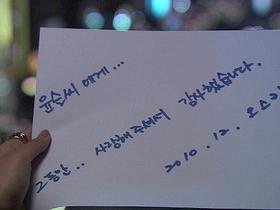 윤수씨 에게...
그동안.. 사랑해 주셔서 감사했습니다.
2010. 12. 오스카